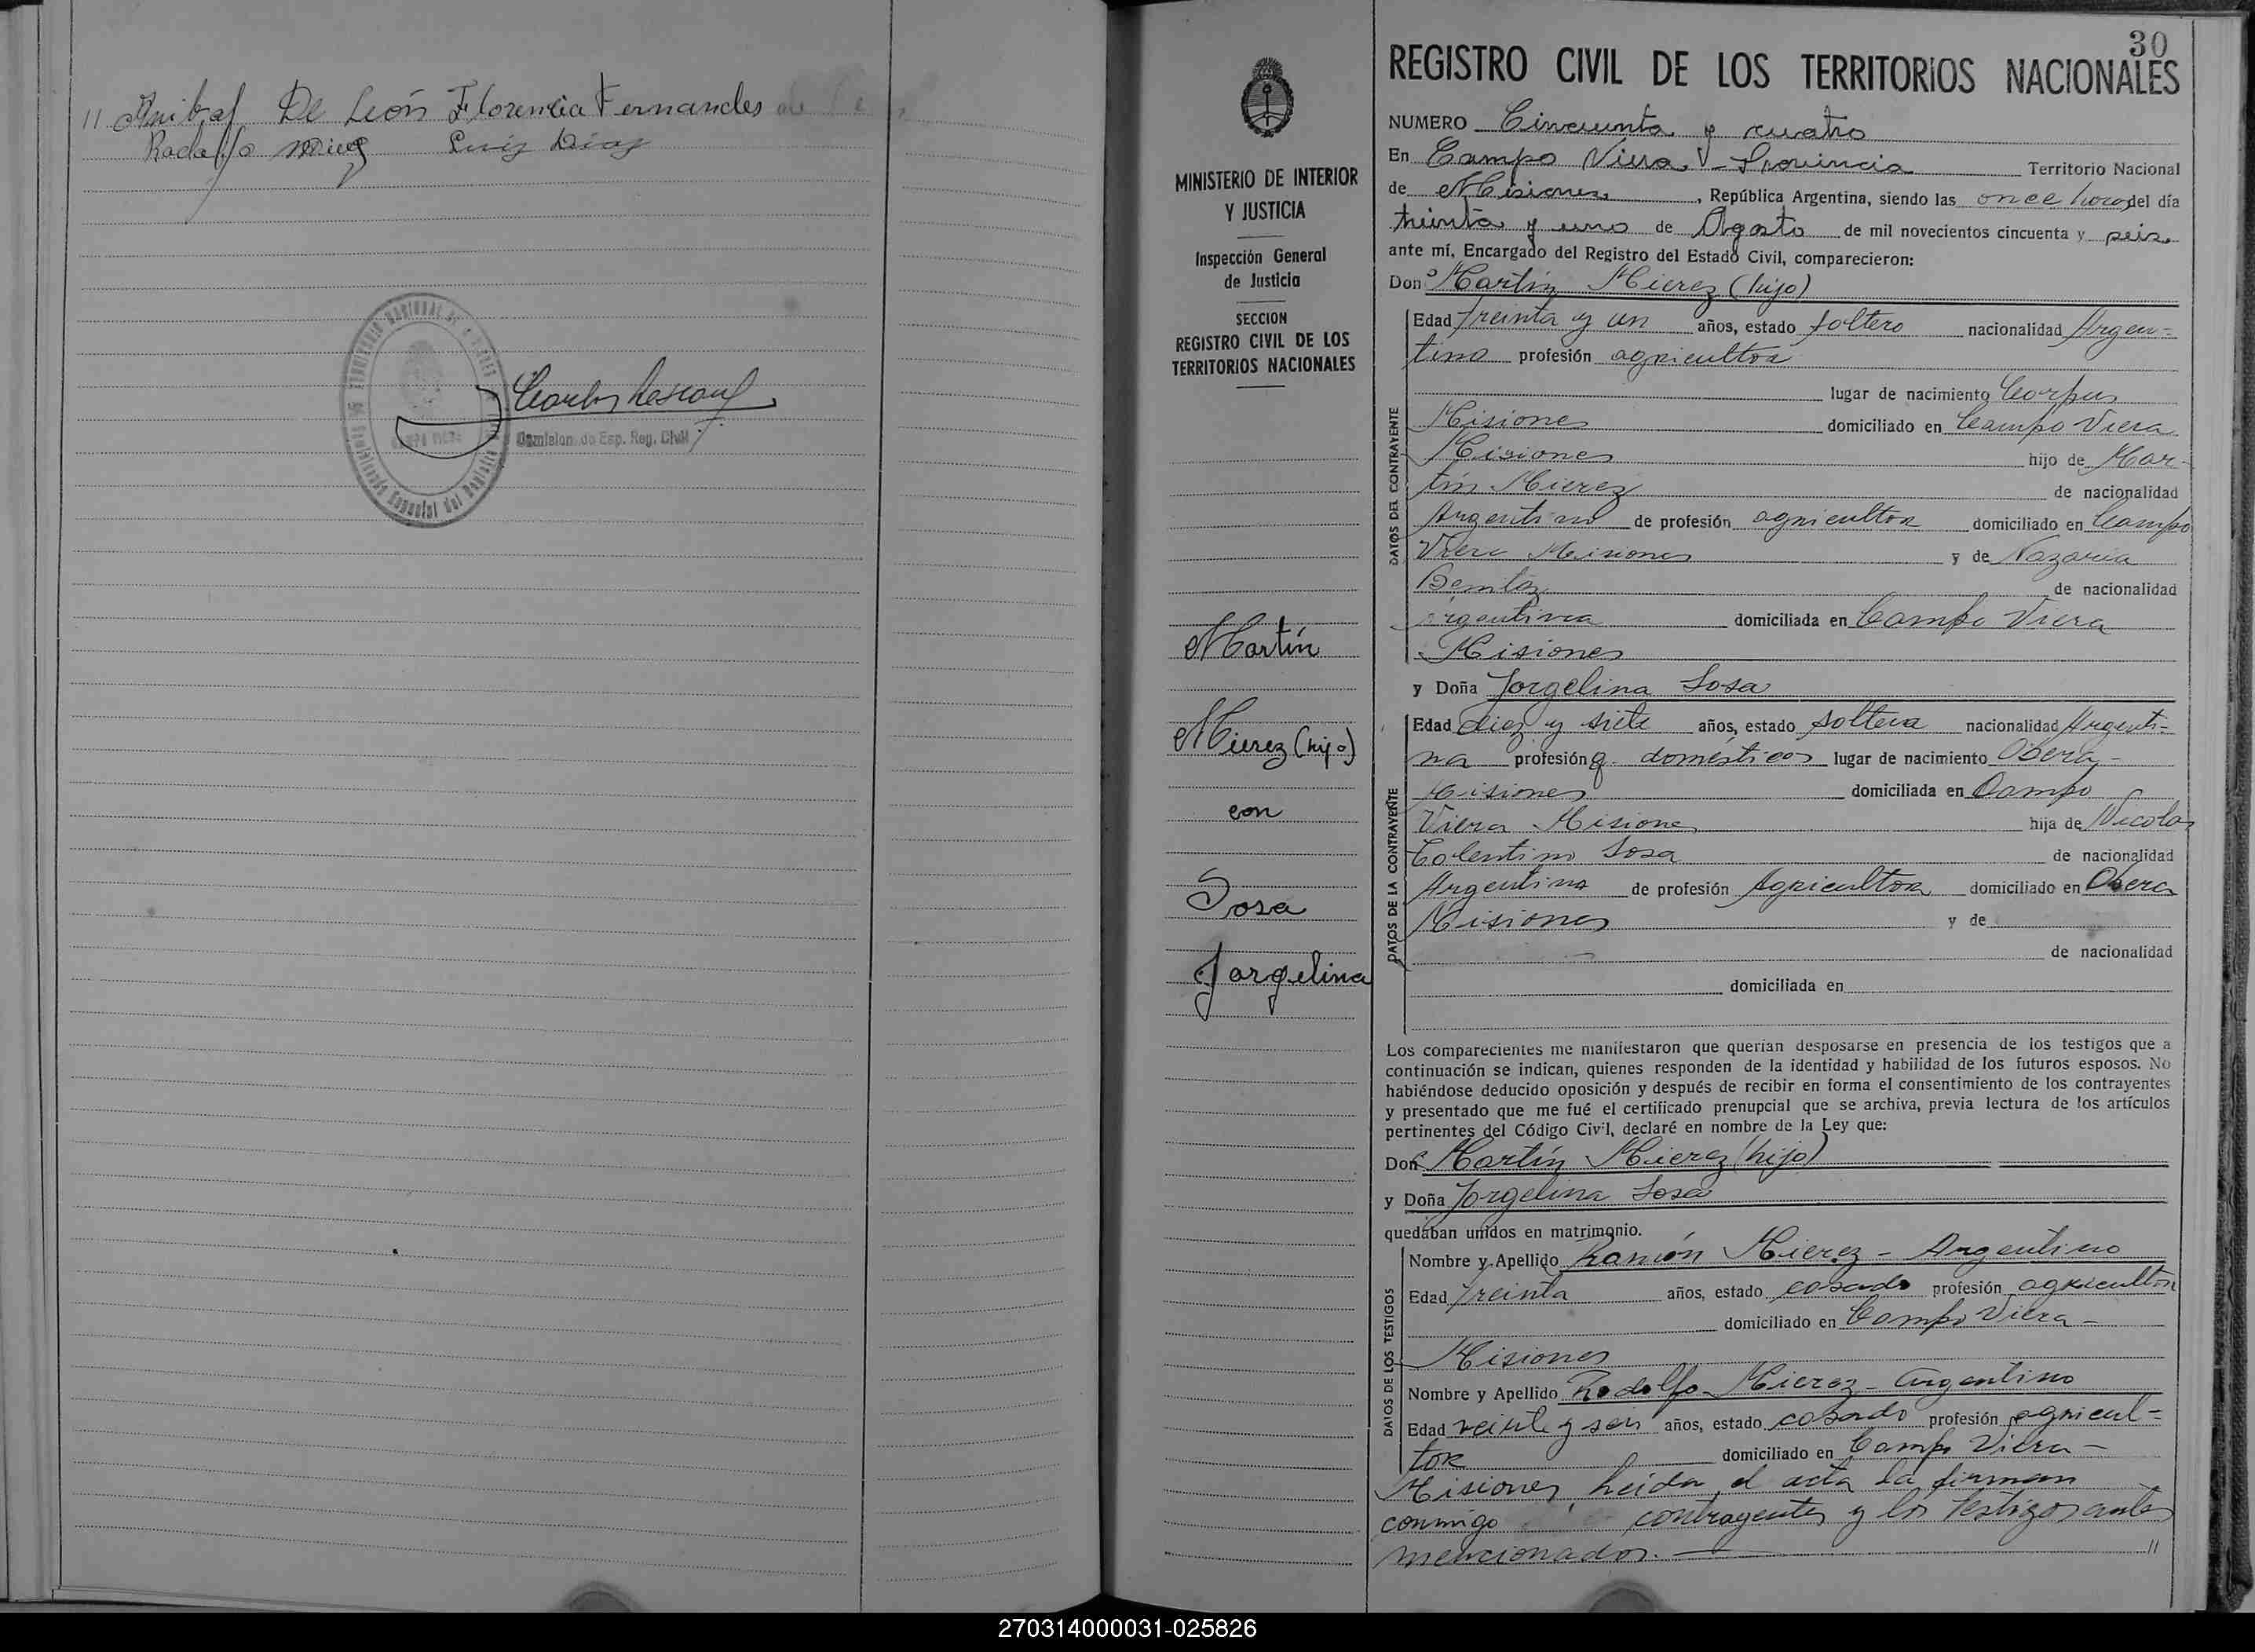 // Anibal De León Florencia Fernandes de
Luis Diaz
Comision. de Esp. Reg. Civil
30
REGISTRO CIVIL DE LOS TERRITORIOS NACIONALES
MINISTERIO DE INTERIOR
Y JUSTICIA
Inspección General
de Justicia
SECCION
REGISTRO CIVIL DE LOS
TERRITORIOS NACIONALES
Martín
Mierez (hijo)
con
Sosa
Jorgelina
NUMERO Cincuenta y cuatro
En Campo Viera - Provincia Territorio Nacional
de Misiones, República Argentina, siendo las once horas del día
treinta y uno de Agosto de mil novecientos cincuenta y seis
ante mí, Encargado del Registro del Estado Civil, comparecieron:
Don Martín Mierez (hijo)
DATOS DEL CONTRAYENTE
Edad Treinta y un años, estado soltero nacionalidad Argen=
tino profesión agricultor
lugar de nacimiento Corpus
Misiones domiciliado en Campo Viera
Misiones hijo de Mar-
tín Mierez de nacionalidad
Argentino de profesión agricultor domiciliado en Campo
Viera Misiones y de Nazaria
Benitez de nacionalidad
argentina domiciliada en Campo Viera
Misiones
y Doña Jorgelina Sosa
DATOS DE LA CONTRAYENTE
Edad diez y siete años, estado soltera nacionalidad Argenti=
na profesión q. domésticos lugar de nacimiento Oberá -
Misiones domiciliada en Campo
Viera Misiones hija de Nicolas
Tolentino Sosa de nacionalidad
Argentino de profesión Agricultor domiciliado en Obera
Misiones y de
de nacionalidad
domiciliada en
Los comparecientes me manifestaron que querían desposarse en presencia de los testigos que a
continuación se indican, quienes responden de la identidad y habilidad de los futuros esposos. No
habiéndose deducido oposición y después de recibir en forma el consentimiento de los contrayentes
y presentado que me fué el certificado prenupcial que se archiva, previa lectura de los artículos
pertinentes del Código Civil, declaré en nombre de la Ley que:
Don Martín Mierez (hijo)
y Doña Jorgelina Sosa
quedaban unidos en matrimonio.
DATOS DE LOS TESTIGOS
Nombre y Apellido Ramón Mierez - Argentino
Edad Treinta años, estado casado profesión agricultor
domiciliado en Campo Viera -
Misiones
Nombre y Apellido Rodolfo Mierez - argentino
Edad veinte y seis años, estado casado profesión agricul=
tor domiciliado en Campo Viera -
Misiones, leida el acta la firman
conmigo contrayentes y los testigos antes
mencionados. — //
270314000031-025826